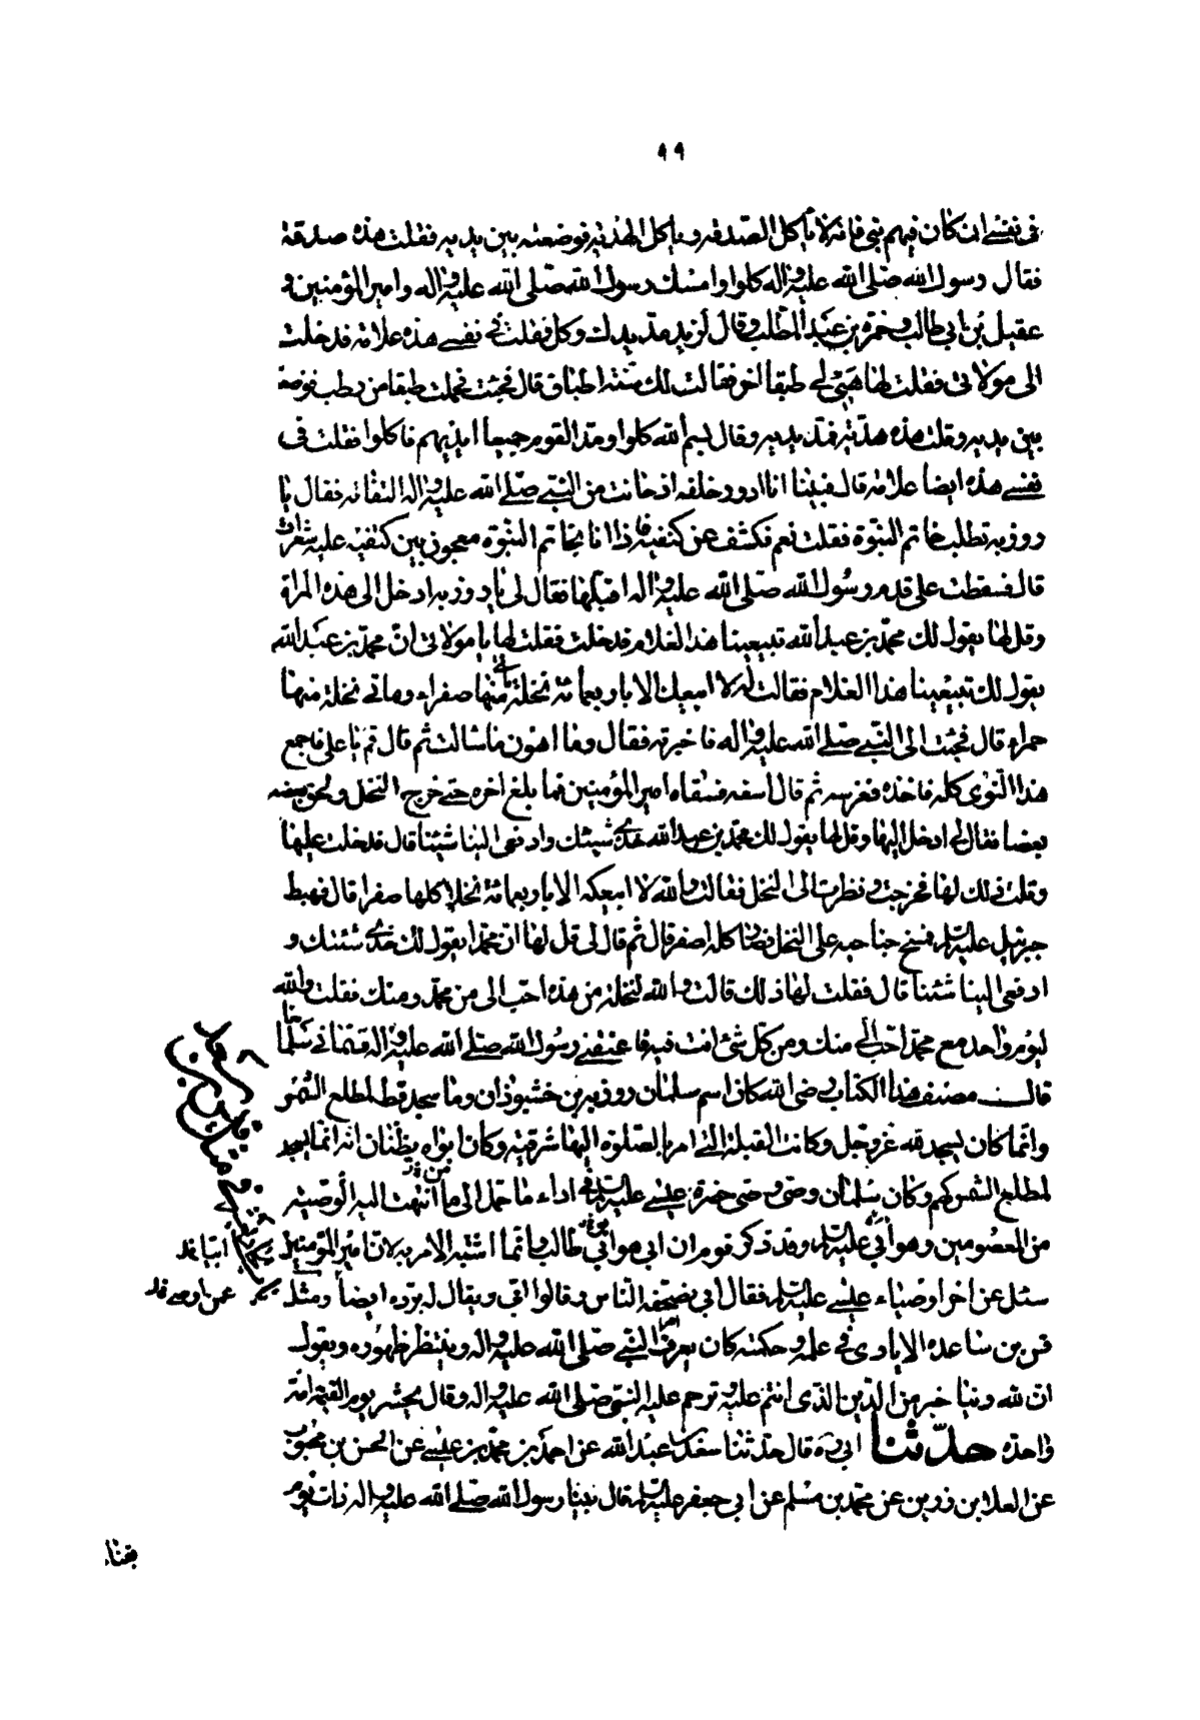 ٩٩
فى نفسى ان كان فيهم نبى فانه لا ياكل الصدقه و ياكل الهديه فوضعته بين يديه فقلت هذه صدقة
فقال رسول الله صلى الله عليه واله كلوا وامسك رسول الله صلى الله عليه واله وامير المؤمنين و
عقيل بن ابى طالب و حمزه بن عبد المطلب وقال لزيد مد يدك وكل فقلت فى نفسى هذه علامة فدخلت
الى مولاتى فقلت لها هبى لى طبقا اخر فقالت لك ستة اطباق قال فجئت فحملت طبقا من رطب فوضعته
بين يديه وقلت هذه هدية فمد يديه وقال بسم الله كلوا ومد القوم جميعا ايديهم فاكلوا فقلت فى
نفسى هذه ايضا علامة قال فبينا انا ادور خلفه اذ حانت من النبى صلى الله عليه واله التفاتة فقال يا
روزبه تطلب خاتم النبوة فقلت نعم فكشف عن كتفيه فاذا انا بخاتم النبوة معجون بين كتفيه عليه شعرات
قال فسقطت على قدم رسول الله صلى الله عليه واله اقبلها فقال لى يا روزبه ادخل الى هذه المراة
وقل لها يقول لك محمد بن عبد الله تبيعينا هذا الغلام فدخلت فقلت لها يا مولاتى ان محمد بن عبد الله
يقول لك تبيعينا هذا الغلام فقالت له لا ابيعك الا باربعمائة نخلة مائتى نخلة منها صفراء ومائتى نخلة منها
حمراء قال فجئت الى النبى صلى الله عليه واله فاخبرته فقال وما اهون ما سالت ثم قال قم يا على فاجمع
هذا النوى كله فاخذه فغرسه ثم قال اسقه فسقاه امير المؤمنين فما بلغ اخره حتى خرج النخل ولحق بعضه
بعضا فقال لى ادخل اليها وقل لها يقول لك محمد بن عبد الله خذى شيئك وادفعى الينا شيئنا قال فدخلت عليها
وقلت ذلك لها فخرجت و نظرت الى النخل فقالت والله لا ابيعكه الا باربعمائة نخلة كلها صفرا قال فهبط
جبرئيل عليه السلام فمسح جناحيه على النخل فصار كله اصفر قال ثم قال لى قل لها ان محمدا يقول لك خذى شيئك و
ادفعى الينا شيئنا قال فقلت لها ذلك قالت والله لنخلة من هذه احب الى من محمد ومنك فقلت والله
ليوم واحد مع محمد احب الى منك ومن كل شئ انت فيه فاعتقنى رسول الله صلى الله عليه واله و سمانى سلمانا
قال مصنف هذا الكتاب رضى الله كان اسم سلمان روزبه بن خشبوذان وما سجد قط لمطلع الشمس
وانما كان يسجد لله عز وجل وكانت القبلة التى امر بالصلوة اليها شرقية وكان ابواه يظنان انه انما يسجد
لمطلع الشمس كهم وكان سلمان وصى وصى حضرة عيسى عليه السلام فى اداء ما حمل الى ما انتهت اليه الوصية
من المعصومين وهو آبى عليه السلام وقد ذكر قوم ان ابى هو ابى طالب وانما اشتبه الامر به لان امير المؤمنين
سئل عن اخر اوصياء عيسى عليه السلام فقال ابى فصحفه الناس وقالوا ابى ويقال له برده ايضا ومثل
قس بن ساعده الايادى فى علمه و حكمته كان يعرف النبى صلى الله عليه واله وينتظر ظهوره ويقول
ان لله دينا خير من الدين الذى انتم عليه و ترحم عليه النبى صلى الله عليه واله وقال يحشر يوم القيمة امة
واحدة حدثنا ابى ره قال حدثنا سعد بن عبد الله عن احمد بن محمد بن عيسى عن الحسن بن محبوب
عن العلا بن رزين عن محمد بن مسلم عن ابى جعفر عليه السلام قال بينا رسول الله صلى الله عليه واله ذات يوم
بفنا